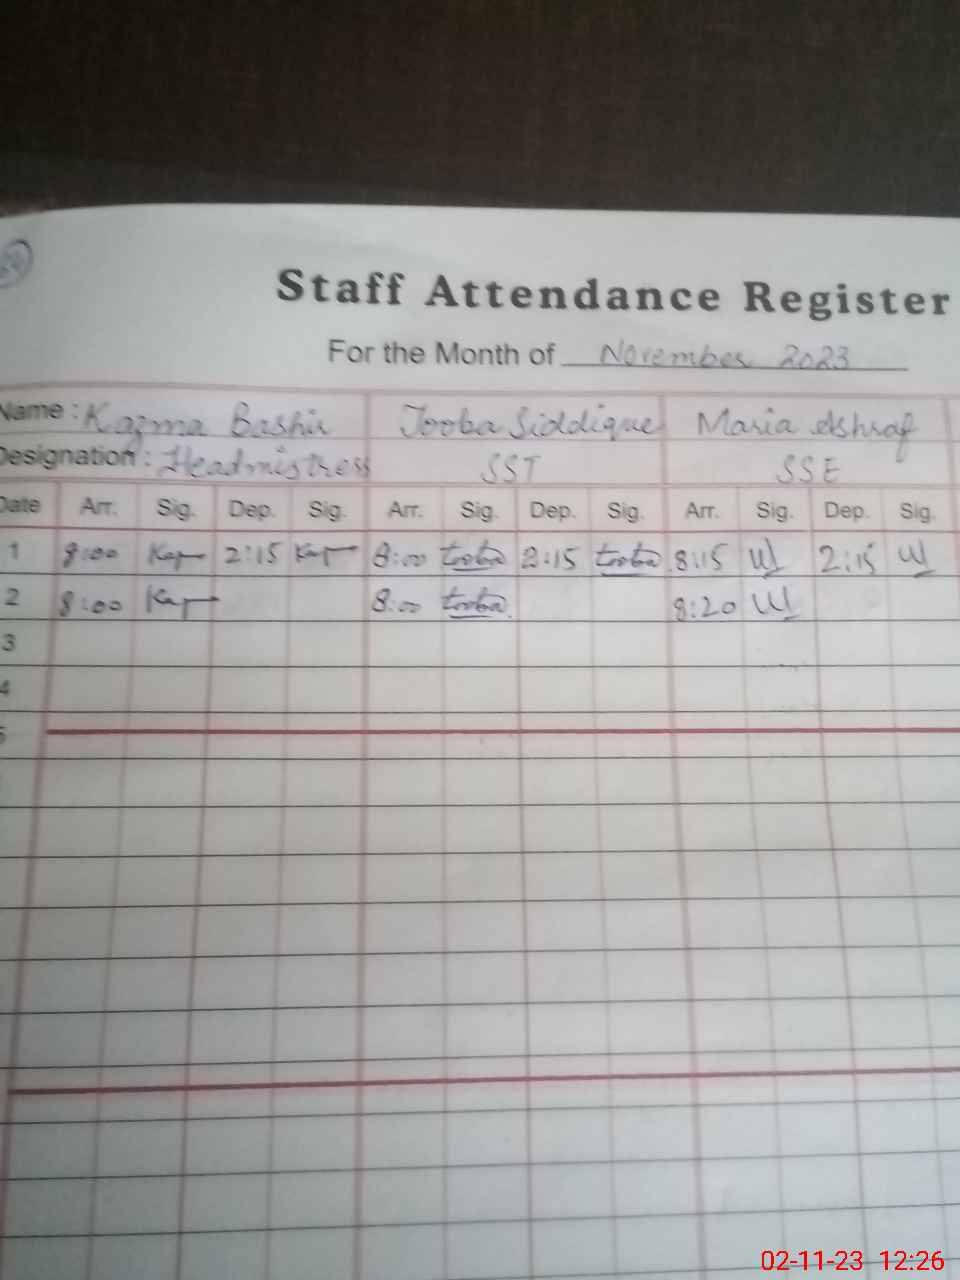 Staff Attendance Register
For the Month of November 2023
Name : Kazma Bashir Tooba Siddique Maria Ashraf
Designation : Headmistress SST SSE
Date Arr. Sig. Dep. Sig. Arr. Sig. Dep. Sig. Arr. Sig. Dep. Sig.
1 8:00 2:15 8:00 tooba 2:15 tooba 8:15 2:15
2 8:00 8:00 tooba 8:20
3
4
5
02-11-23 12:26